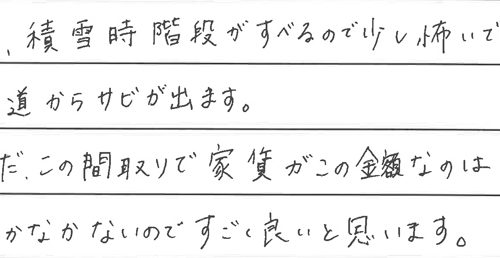 、積雪時階段がすべるので少し怖いで
道からサビが出ます。
だ、この間取りで家賃がこの金額なのは
かなかないのですごく良いと思います。